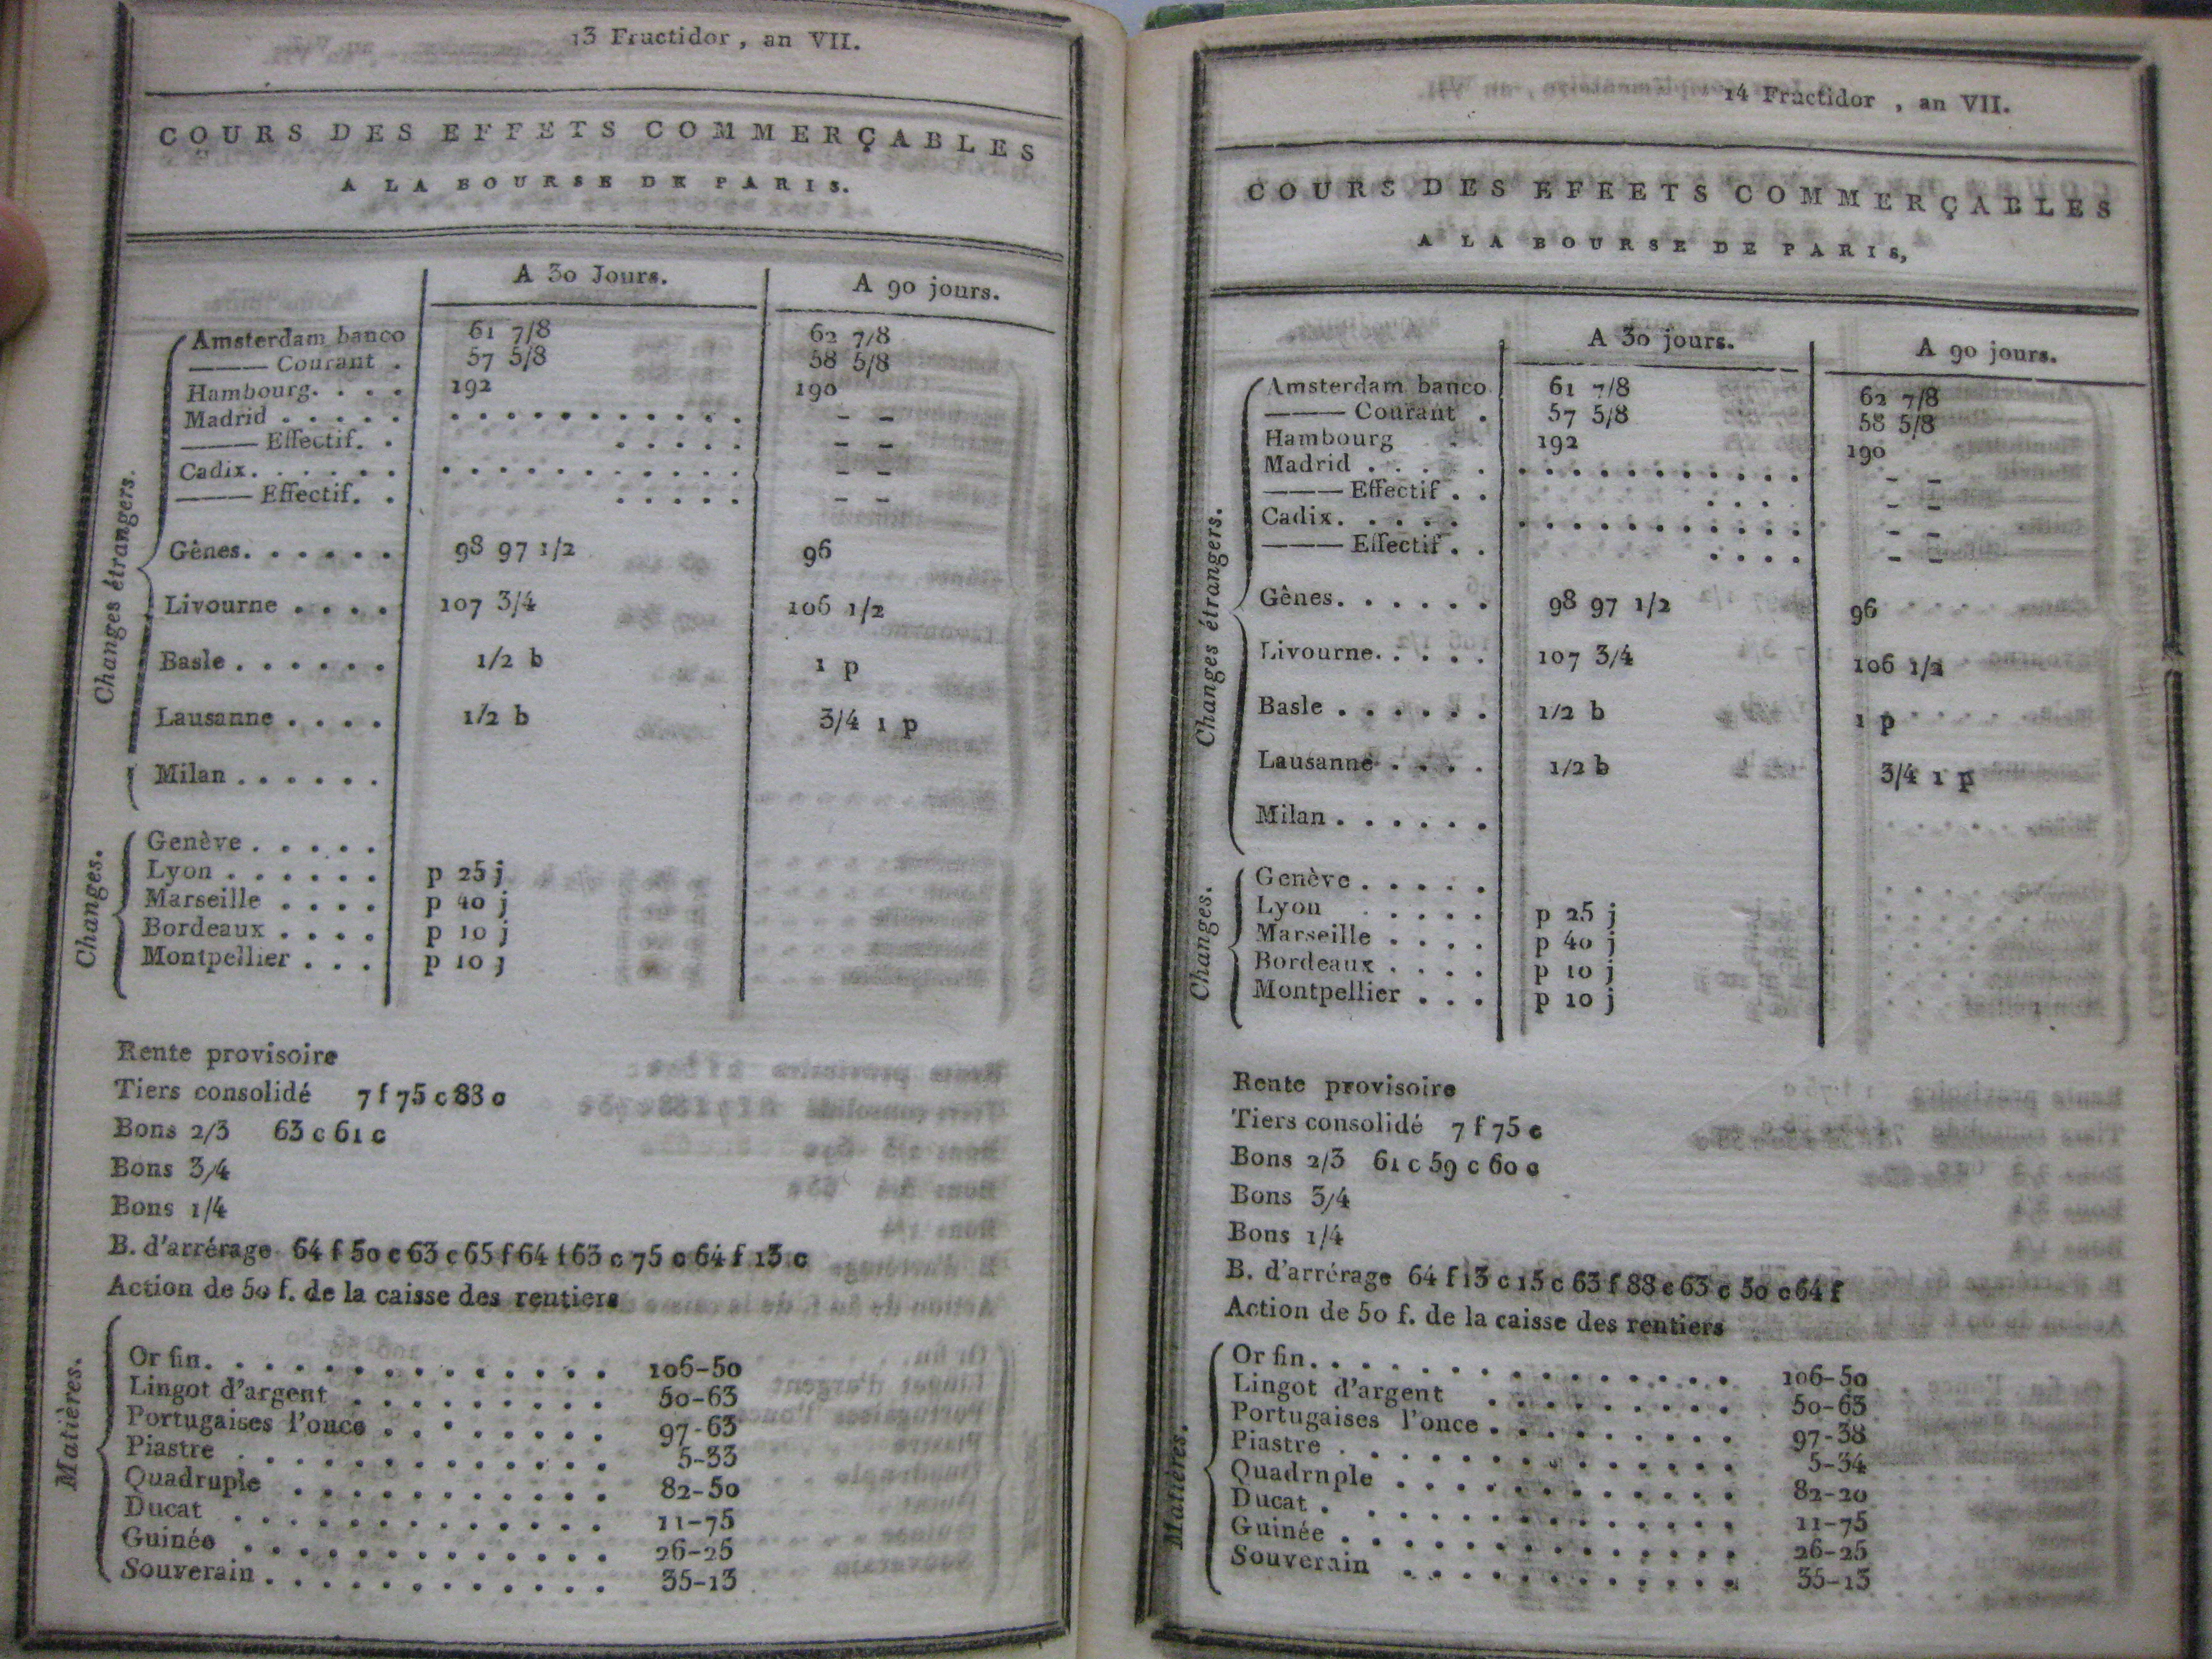 13 Fructidor, an VII.
COURS DES EFFETS COMMERÇABLES
A LA BOURSE DE PARIS.
A 30 Jours. A 90 jours.
Changes étrangers.
Amsterdam banco 61 7/8 62 7/8
——— Courant . 57 5/8 58 5/8
Hambourg. . . . 192 190
Madrid . . . . . . . . . . . . . . . . – –
——— Effectif. . . . . . . – –
Cadix. . . . . . . . . . . . . . . . . – –
——— Effectif. . . . . . . – –
Gênes. . . . . . 98 97 1/2 96
Livourne . . . . 107 3/4 106 1/2
Basle . . . . . . 1/2 b 1 p
Lausanne . . . . 1/2 b 3/4 1 p
Milan . . . . . .
Changes.
Genève . . . . .
Lyon . . . . . . p 25 j
Marseille . . . . p 40 j
Bordeaux . . . . p 10 j
Montpellier . . . p 10 j
Rente provisoire
Tiers consolidé 7 f 75 c 83 c
Bons 2/3 63 c 61 c
Bons 3/4
Bons 1/4
B. d'arrérage 64 f 50 c 63 c 65 f 64 f 63 c 75 c 64 f 13 c
Action de 50 f. de la caisse des rentiers
Matières.
Or fin. . . . . . . . . . . . . 106-50
Lingot d'argent . . . . . . . . . 50-63
Portugaises l'once . . . . . . . . 97-63
Piastre . . . . . . . . . . . . . 5-33
Quadruple . . . . . . . . . . . 82-50
Ducat . . . . . . . . . . . . . 11-75
Guinée . . . . . . . . . . . . . 26-25
Souverain . . . . . . . . . . . . 35-13
14 Fructidor , an VII.
COURS DES EFEETS COMMERÇABLES
A LA BOURSE DE PARIS,
A 30 jours. A 90 jours.
Changes étrangers.
Amsterdam banco 61 7/8 62 7/8
——— Courant . 57 5/8 58 5/8
Hambourg 192 190
Madrid . . . . . . . . . . . . . . . . – –
——— Effectif . . . . . . – –
Cadix. . . . . . . . . . . . . . . . . – –
——— Effectif . . . . . . – –
Gênes. . . . . . 98 97 1/2 96
Livourne. . . . . 107 3/4 106 1/2
Basle . . . . . . 1/2 b 1 p
Lausanne . . . . 1/2 b 3/4 1 p
Milan . . . . . .
Changes.
Genève . . . . .
Lyon . . . . p 25 j
Marseille . . . . p 40 j
Bordeaux . . . . p 10 j
Montpellier . . . p 10 j
Rente provisoire
Tiers consolidé 7 f 75 c
Bons 2/3 61 c 59 c 60 c
Bons 3/4
Bons 1/4
B. d'arrérage 64 f 13 c 15 c 63 f 88 c 63 c 50 c 64 f
Action de 50 f. de la caisse des rentiers
Matières.
Or fin. . . . . . . . . . . . . 106-50
Lingot d'argent . . . . . . . . . 50-63
Portugaises l'once . . . . . . . . . 97-38
Piastre . . . . . . . . . . . . . 5-34
Quadrnple . . . . . . . . . . . 82-20
Ducat . . . . . . . . . . . . . 11-75
Guinée . . . . . . . . . . . . . 26-25
Souverain . . . . . . . . . . . 35-13